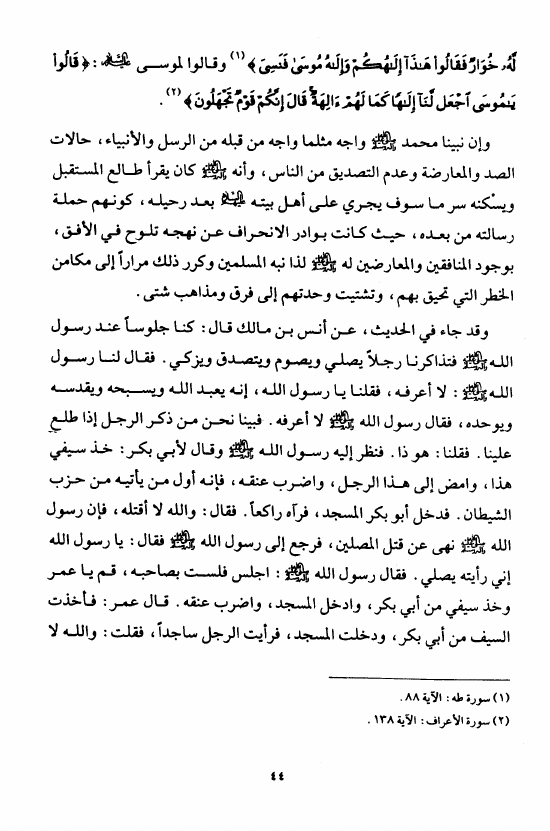 لَّهُ خُوَارٌ فَقَالُوا هَٰذَآ إِلَٰهُكُمْ وَإِلَٰهُ مُوسَىٰ فَنَسِىَ﴾(١) وقالوا لموسى ﷷ : ﴿قَالُوا
يَٰمُوسَى ٱجْعَل لَّنَآ إِلَٰهًا كَمَا لَهُمْ ءَالِهَةٌ قَالَ إِنَّكُمْ قَوْمٌ تَجْهَلُونَ﴾(٢) .
وإن نبينا محمد ﷺ واجه مثلما واجه من قبله من الرسل والأنبياء، حالات
الصد والمعارضة وعدم التصديق من الناس، وأنه ﷺ كان يقرأ طالع المستقبل
ويسْكنه سر ما سوف يجري على أهل بيته بعد رحيله، كونهم حملة
رسالته من بعده، حيث كانت بوادر الانحراف عن نهجه تلوح في الأفق،
بوجود المنافقين والمعارضين له ﷺ لذا نبه المسلمين وكرر ذلك مراراً إلى مكامن
الخطر التي تحيق بهم، وتشتيت وحدتهم إلى فرق ومذاهب شتى.
وقد جاء في الحديث، عن أنس بن مالك قال: كنا جلوساً عند رسول
الله ﷺ فتذاكرنا رجلاً يصلي ويصوم ويتصدق ويزكي. فقال لنا رسول
الله ﷺ : لا أعرفه، فقلنا يا رسول الله، إنه يعبد الله ويسبحه ويقدسه
ويوحده، فقال رسول الله ﷺ لا أعرفه. فبينا نحن من ذكر الرجل إذا طلع
علينا. فقلنا: هو ذا. فنظر إليه رسول الله ﷺ وقال لأبي بكر: خذ سيفي
هذا، وامض إلى هذا الرجل، واضرب عنقه، فإنه أول من يأتيه من حزب
الشيطان. فدخل أبو بكر المسجد، فرآه راكعاً. فقال: والله لا أقتله، فإن رسول
الله ﷺ نهى عن قتل المصلين، فرجع إلى رسول الله ﷺ فقال: يا رسول الله
إني رأيته يصلي. فقال رسول الله ﷺ : اجلس فلست بصاحبه، قم يا عمر
وخذ سيفي من أبي بكر، وادخل المسجد، واضرب عنقه. قال عمر: فأخذت
السيف من أبي بكر، ودخلت المسجد، فرأيت الرجل ساجداً، فقلت: والله لا
(١) سورة طه: الآية ٨٨.
(٢) سورة الأعراف: الآية ١٣٨.
٤٤